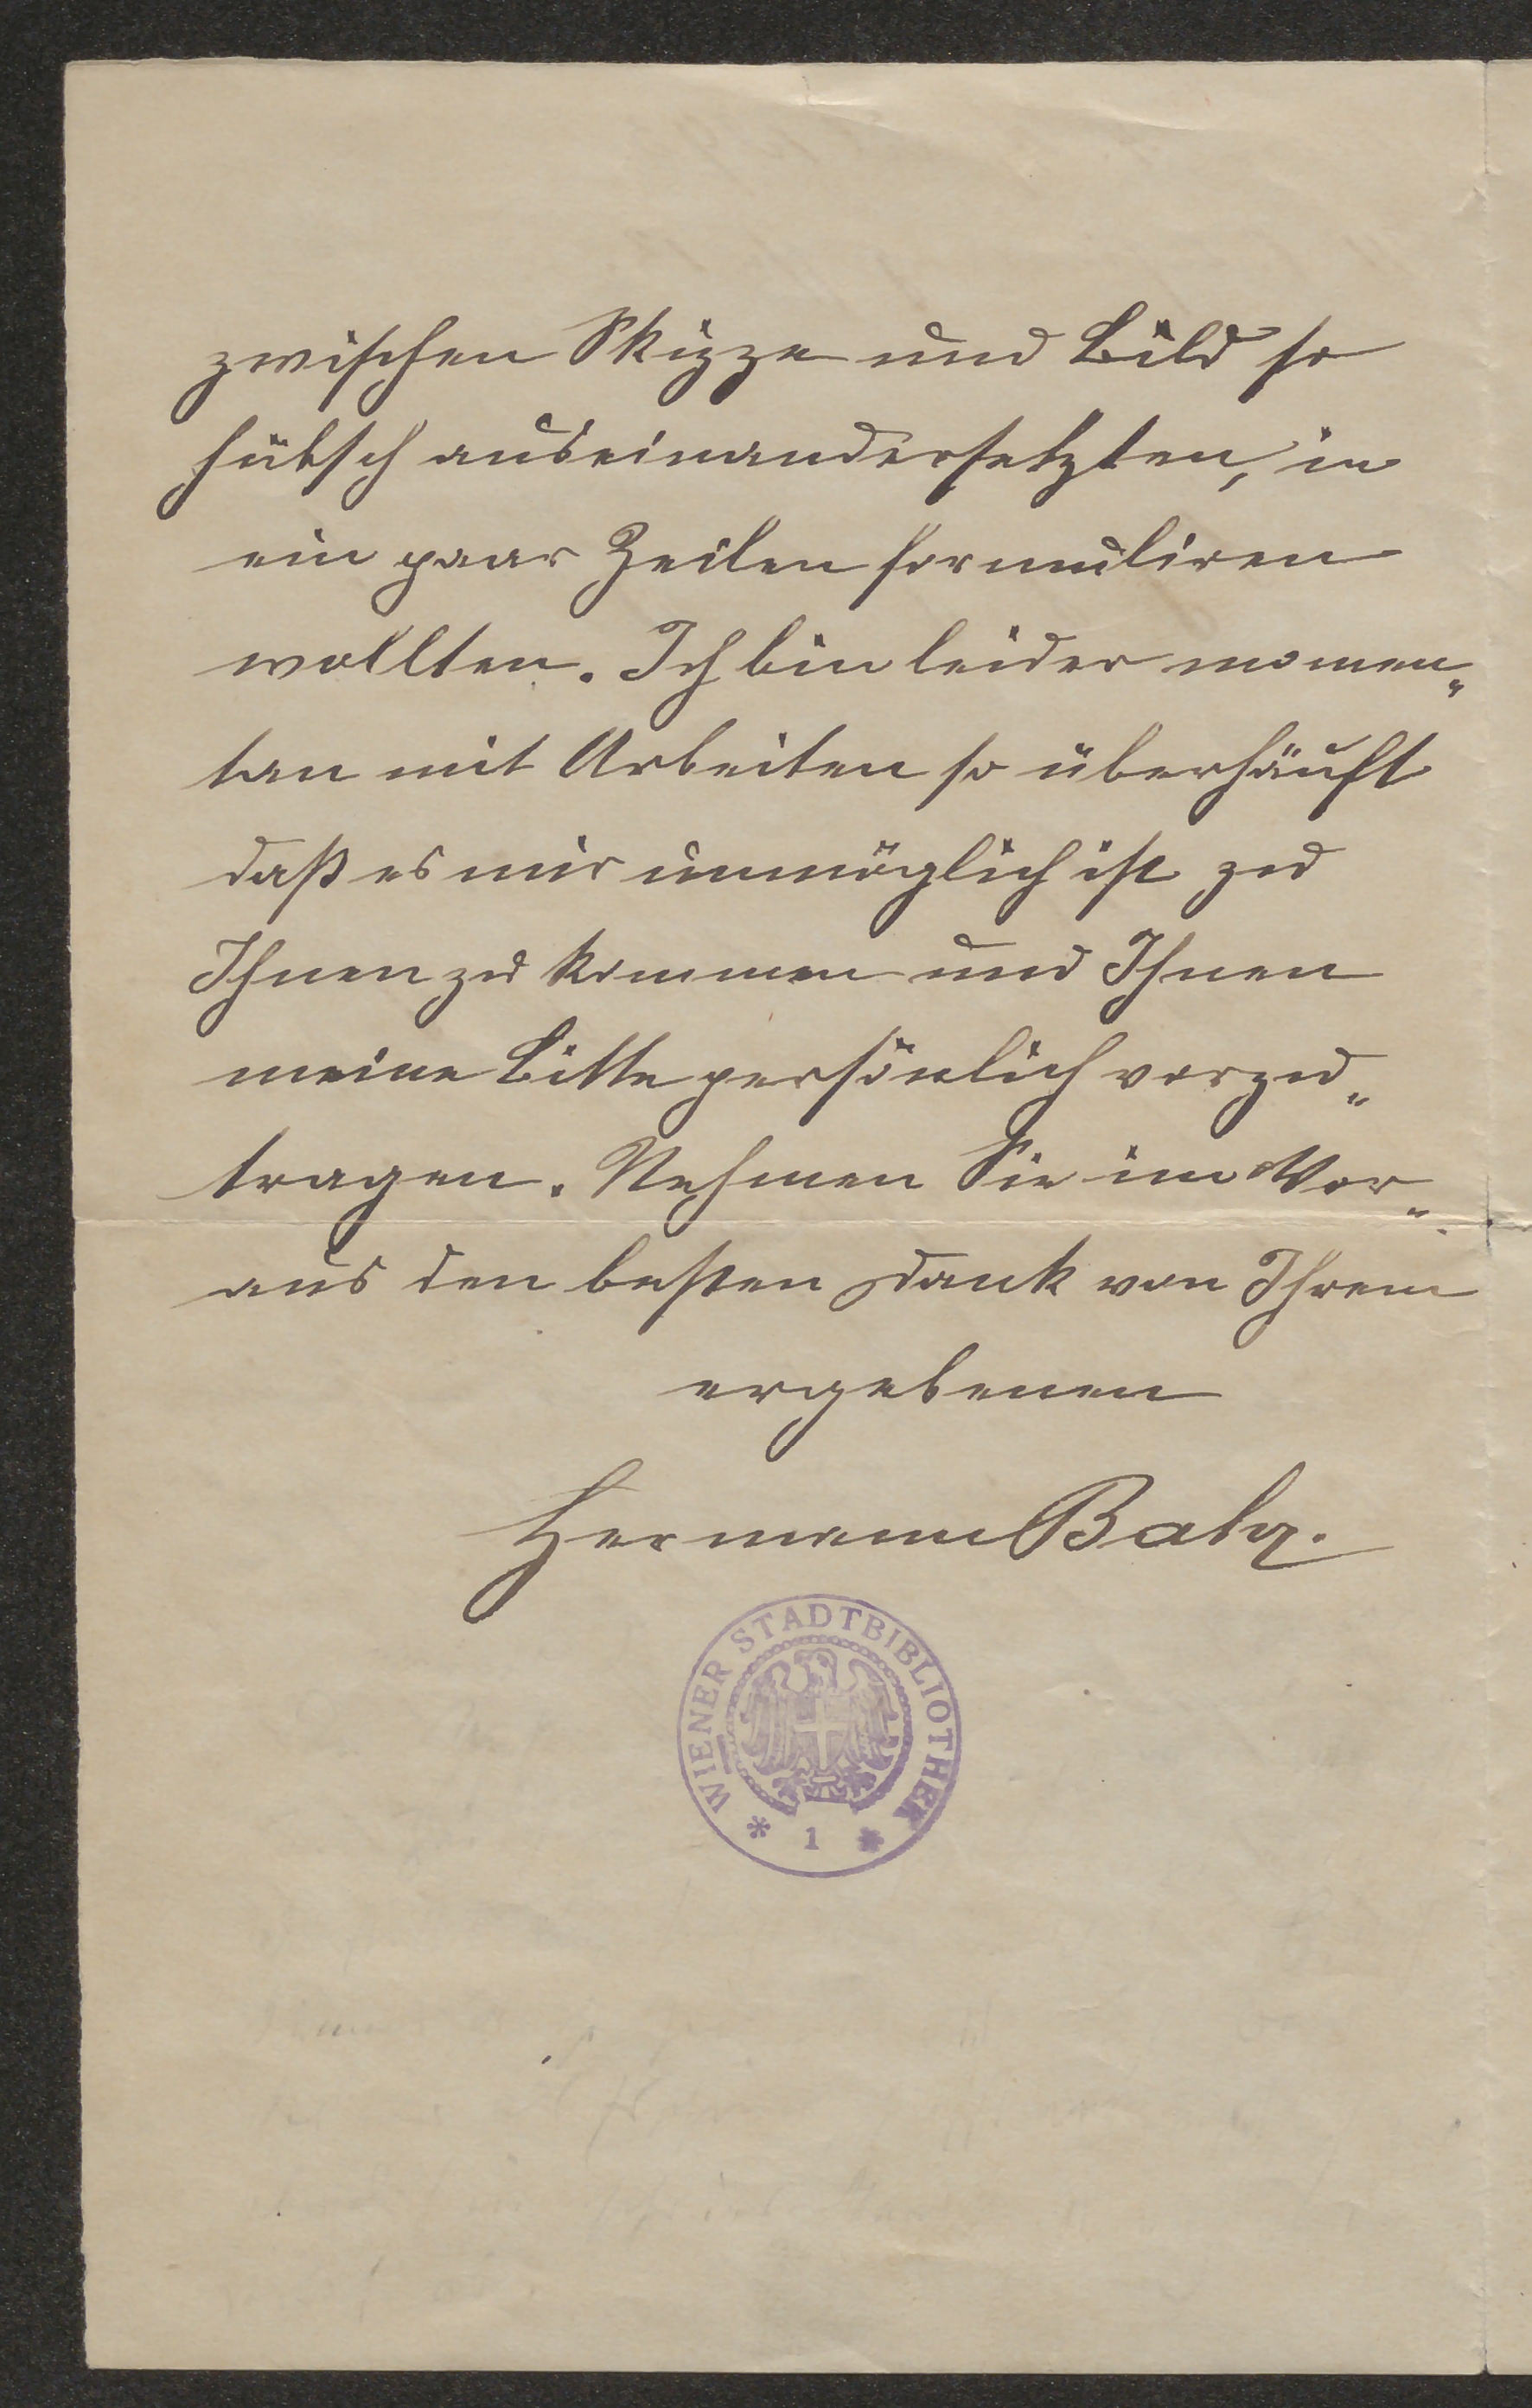 zwischen Skizze und Bild so
hübsch auseinandersetzten, in
ein paar Zeilen formuliren
wollten. Ich bin leider momen„
tan mit Arbeiten so überhäuft
daß es mir unmöglich ist zu
Ihnen zu kommen und Ihnen
meine Bitte persönlich vorzu„
tragen. Nehmen Sie im Vor„
aus den besten Dank von Ihrem
ergebenen
Hermann Bahr.
WIENER STADTBIBLIOTHEK
* 1 *